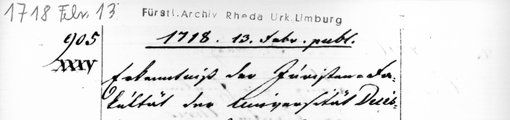 1718 Febr. 13
Fürstl. Archiv Rheda Urk. Limburg
905
XXXV
1718. 13. Febr. publ.
Erkenntniß der Juristen-Fa-
kultät der Universität Duis-